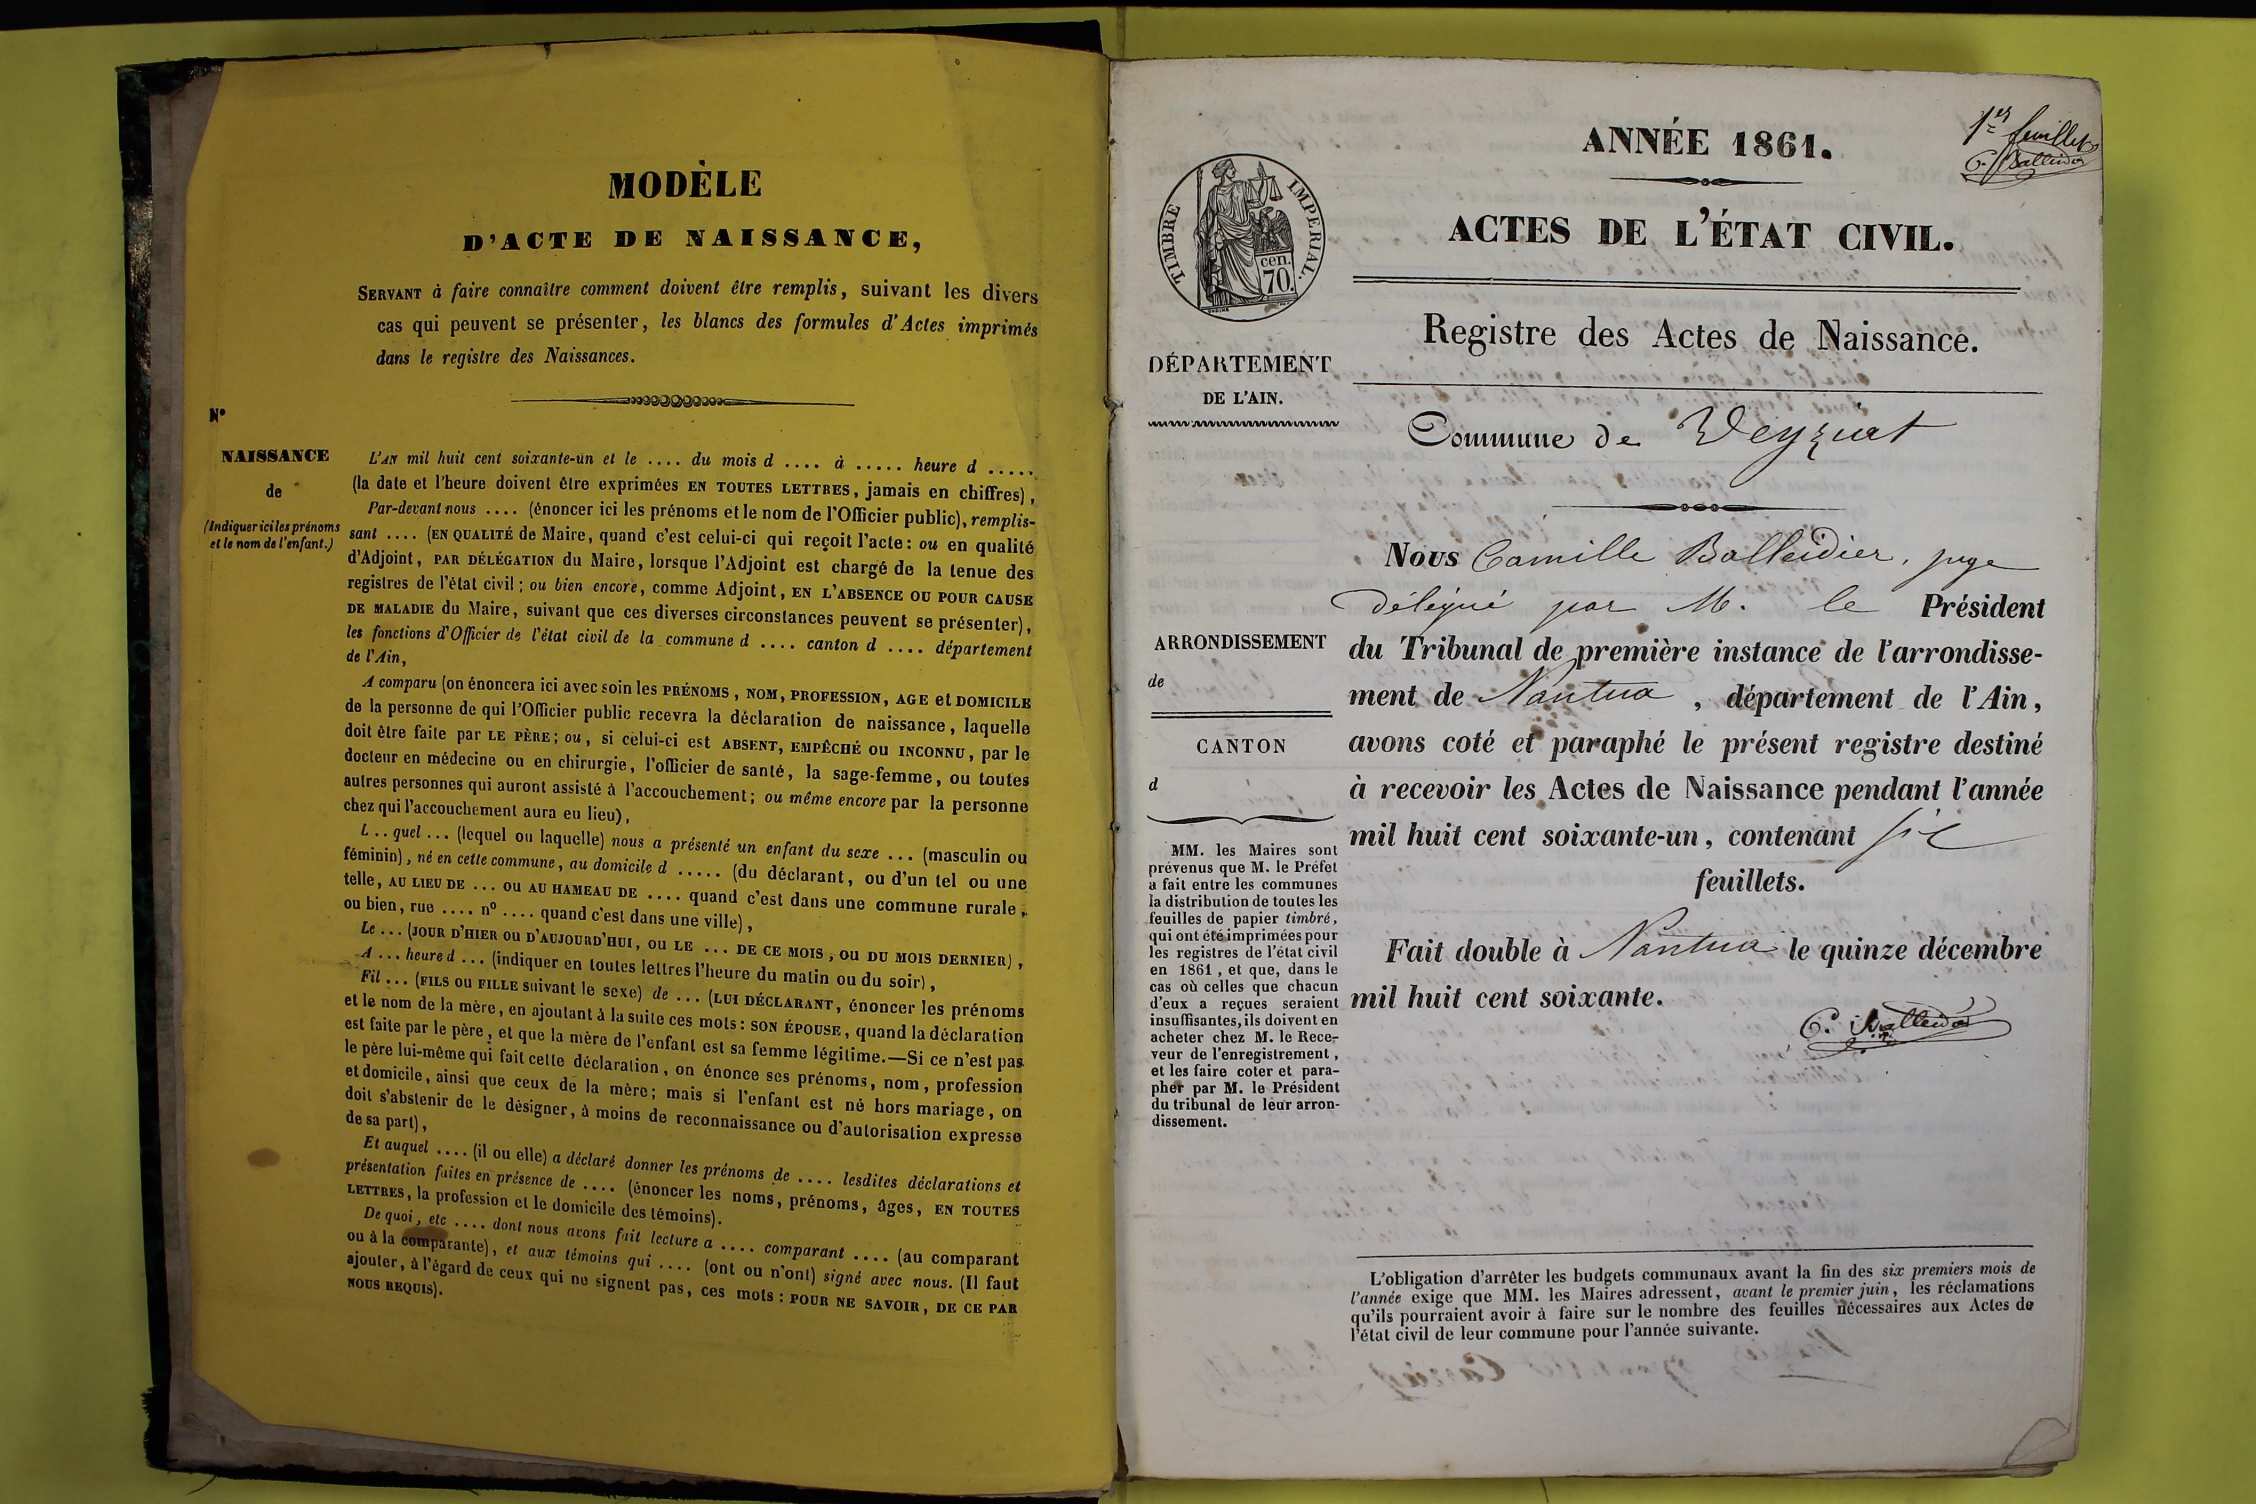 MODÈLE
D'ACTE DE NAISSANCE,
SERVANT à faire connaître comment doivent être remplis, suivant les divers
cas qui peuvent se présenter, les blancs des formules d'Actes imprimés
dans le registre des Naissances.
N°
NAISSANCE
de
(Indiquer ici les prénoms
et le nom de l'enfant.)
L'AN mil huit cent soixante-un et le .... du mois d .... à ..... heure d .....
(la date et l'heure doivent être exprimées EN TOUTES LETTRES, jamais en chiffres),
Par-devant nous .... (énoncer ici les prénoms et le nom de l'Officier public), remplis-
sant .... (EN QUALITÉ de Maire, quand c'est celui-ci qui reçoit l'acte: ou en qualité
d'Adjoint, PAR DÉLÉGATION du Maire, lorsque l'Adjoint est chargé de la tenue des
registres de l'état civil; ou bien encore, comme Adjoint, EN L'ABSENCE OU POUR CAUSE
DE MALADIE du Maire, suivant que ces diverses circonstances peuvent se présenter),
les fonctions d'Officier de l'état civil de la commune d .... canton d .... département
de l'Ain,
A comparu (on énoncera ici avec soin les PRÉNOMS, NOM, PROFESSION, AGE et DOMICILE
de la personne de qui l'Officier public recevra la déclaration de naissance, laquelle
doit être faite par LE PÈRE; ou, si celui-ci est ABSENT, EMPÊCHÉ OU INCONNU, par le
docteur en médecine ou en chirurgie, l'officier de santé, la sage-femme, ou toutes
autres personnes qui auront assisté à l'accouchement; ou même encore par la personne
chez qui l'accouchement aura eu lieu),
L..quel ... (lequel ou laquelle) nous a présenté un enfant du sexe ... (masculin ou
féminin), né en cette commune, au domicile d ..... (du déclarant, ou d'un tel ou une
telle, AU LIEU DE ... OU AU HAMEAU DE .... quand c'est dans une commune rurale,
ou bien, rue .... n° .... quand c'est dans une ville),
Le ... (JOUR D'HIER OU D'AUJOURD'HUI, OU LE ... DE CE MOIS, OU DU MOIS DERNIER),
A ... heure d ... (indiquer en toutes lettres l'heure du matin ou du soir),
Fil ... (FILS OU FILLE suivant le sexe) de ... (LUI DÉCLARANT, énoncer les prénoms
et le nom de la mère, en ajoutant à la suite ces mots: SON ÉPOUSE, quand la déclaration
est faite par le père, et que la mère de l'enfant est sa femme légitime.—Si ce n'est pas
le père lui-même qui fait cette déclaration, on énonce ses prénoms, nom, profession
et domicile, ainsi que ceux de la mère; mais si l'enfant est né hors mariage, on
doit s'abstenir de le désigner, à moins de reconnaissance ou d'autorisation expresse
de sa part),
Et auquel .... (il ou elle) a déclaré donner les prénoms de .... lesdites déclarations et
présentation faites en présence de .... (énoncer les noms, prénoms, âges, EN TOUTES
LETTRES, la profession et le domicile des témoins).
De quoi, etc .... dont nous avons fait lecture a .... comparant .... (au comparant
ou à la comparante), et aux témoins qui .... (ont ou n'ont) signé avec nous. (Il faut
ajouter, à l'égard de ceux qui ne signent pas, ces mots: POUR NE SAVOIR, DE CE PAR
NOUS REQUIS).
1er feuillet
C. Balleidier
ANNÉE 1861.
ACTES DE L'ÉTAT CIVIL.
TIMBRE IMPERIAL.
cen.
70.
Registre des Actes de Naissance.
DÉPARTEMENT
DE L'AIN.
Commune de Veyziat
Nous Camille Balleidier, juge
délégué par M. le Président
du Tribunal de première instance de l'arrondisse-
ment de Nantua, département de l'Ain,
avons coté et paraphé le présent registre destiné
à recevoir les Actes de Naissance pendant l'année
mil huit cent soixante-un, contenant six
feuillets.
Fait double à Nantua le quinze décembre
mil huit cent soixante.
C. Balleidier
ARRONDISSEMENT
de
CANTON
d
MM. les Maires sont
prévenus que M. le Préfet
a fait entre les communes
la distribution de toutes les
feuilles de papier timbré,
qui ont été imprimées pour
les registres de l'état civil
en 1861, et que, dans le
cas où celles que chacun
d'eux a reçues seraient
insuffisantes, ils doivent en
acheter chez M. le Rece-
veur de l'enregistrement,
et les faire coter et para-
pher par M. le Président
du tribunal de leur arron-
dissement.
L'obligation d'arrêter les budgets communaux avant la fin des six premiers mois de
l'année exige que MM. les Maires adressent, avant le premier juin, les réclamations
qu'ils pourraient avoir à faire sur le nombre des feuilles nécessaires aux Actes de
l'état civil de leur commune pour l'année suivante.